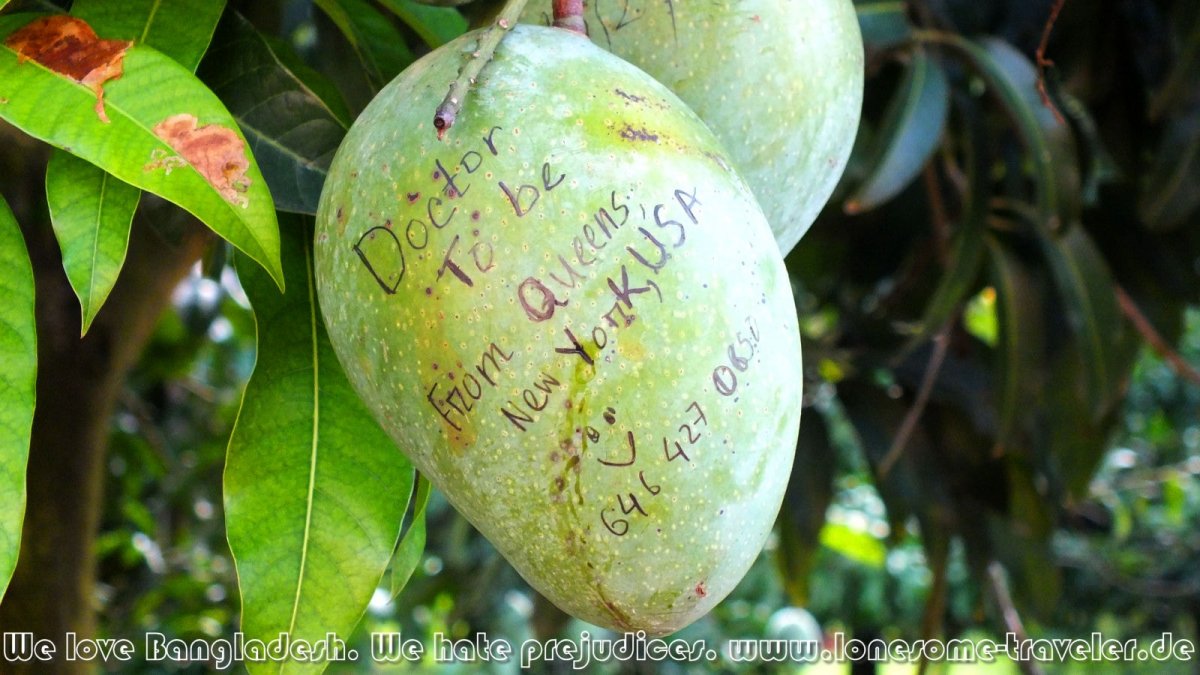 Doctor
To be
From Queens,
New York, USA
646 427
We love Bangladesh. We hate prejudices. www.lonesome-traveler.de